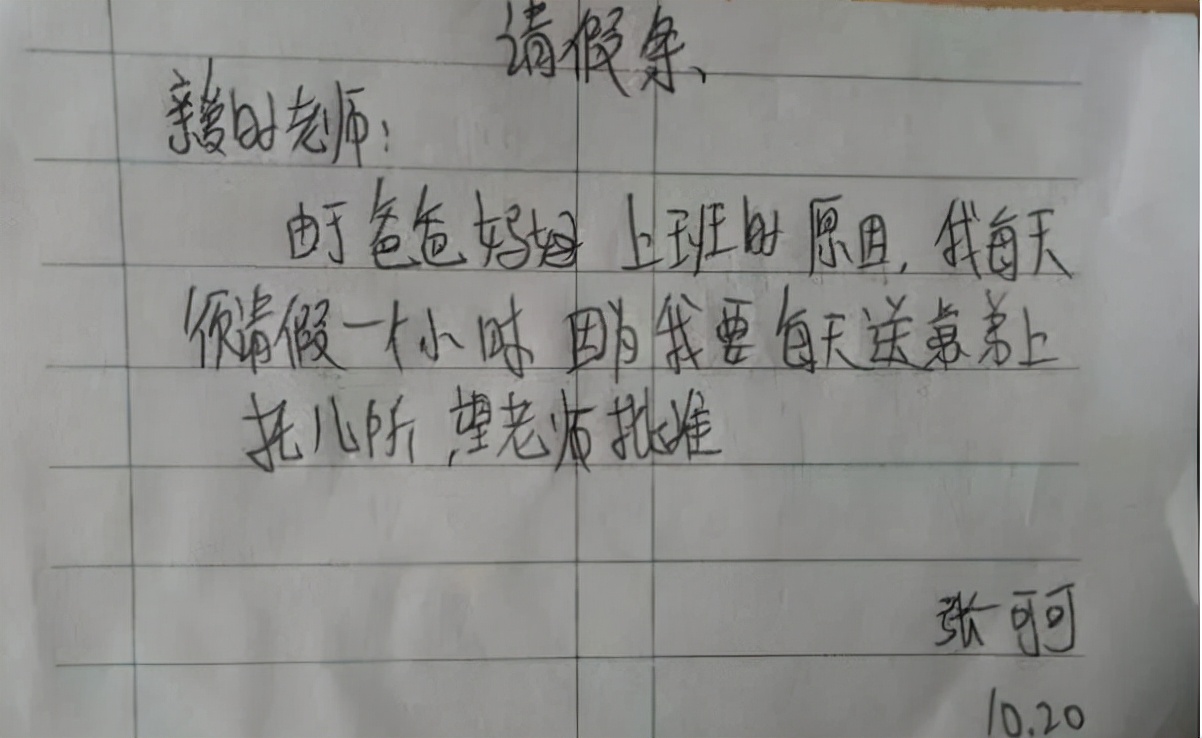 请假条
亲爱的老师：
由于爸爸妈妈上班的原因，我每天
须请假一个小时因为我要每天送弟弟上
托儿所，望老师批准
张可可
10.20